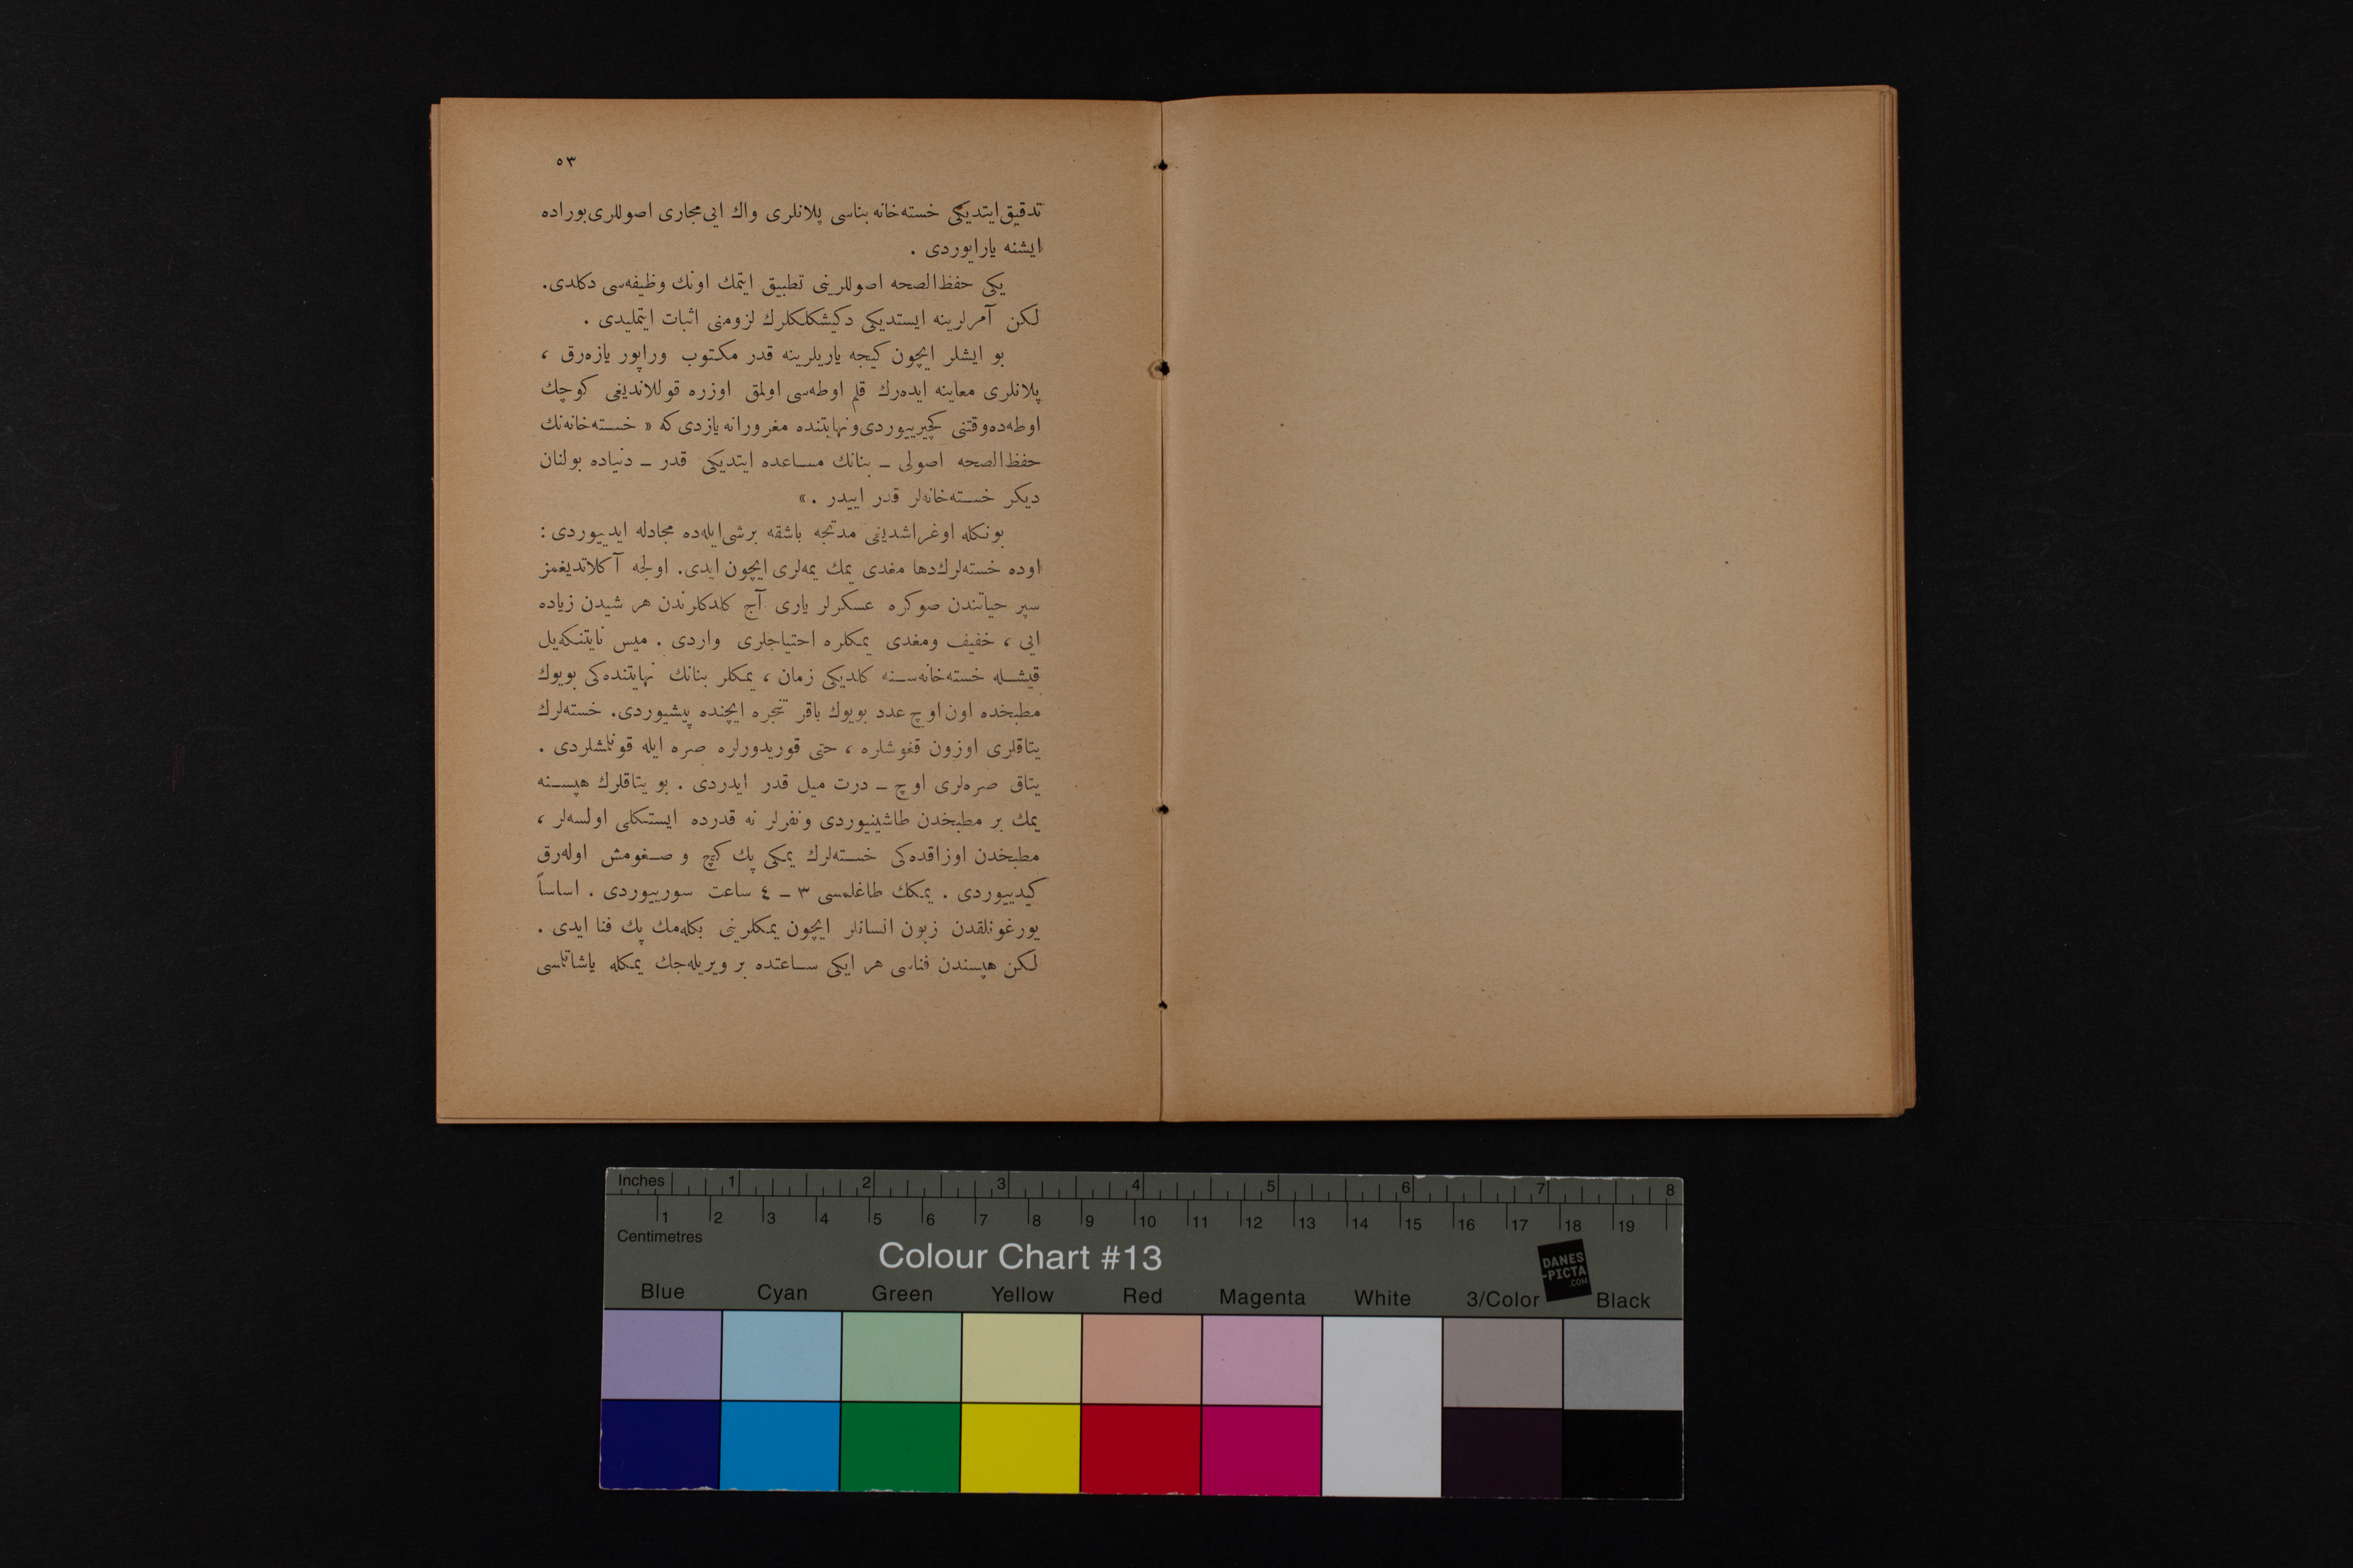 ٥٣
تدقيق ايتديكى خسته‌خانه بناسى پلانلرى واك ايى مجارى اصوللرى بوراده
ايشنه يارايوردى .
يكى حفظ‌الصحه اصوللرينى تطبيق ايتمك اونك وظيفه‌سى دكلدى.
لكن آمرلرينه ايستديكى دكيشكلكلرك لزومنى اثبات ايتمليدى .
بو ايشلر ايچون كيجه ياريلرينه قدر مكتوب وراپور يازه‌رق ،
پلانلرى معاينه ايده‌رك قلم اوطه‌سى اولمق اوزره قوللانديغى كوچك
اوطه‌ده وقتنى كچيرييوردى ونهايتنده مغرورانه يازدى كه « خسته‌خانه‌نك
حفظ‌الصحه اصولى ـ بنانك مساعده ايتديكى قدر ـ دنياده بولنان
ديكر خسته‌خانه‌لر قدر اييدر . »
بونكله اوغراشديغى مدتجه باشقه برشى ايله‌ده مجادله ايدييوردى :
اوده خسته‌لرك دها مغدى يمك يمه‌لرى ايچون ايدى. اولجه آكلاتديغمز
سپر حياتندن صوكره عسكرلر يارى آج كلدكلرندن هر شيدن زياده
ايى ، خفيف ومغدى يمكلره احتياجلرى واردى . ميس نايتنكه‌يل
قيشله خسته‌خانه‌سنه كلديكى زمان ، يمكلر بنانك نهايتنده‌كى بويوك
مطبخده اون اوچ عدد بويوك باقر تنجره ايچنده پيشيوردى. خسته‌لرك
يتاقلرى اوزون قغوشلره ، حتى قوريدورلره صره ايله قونلمشلردى .
يتاق صره‌لرى اوچ ـ درت ميل قدر ايدردى . بو يتاقلرك هپسنه
يمك بر مطبخدن طاشينيوردى ونفرلر نه قدرده ايستكلى اولسه‌لر ،
مطبخدن اوزاقده‌كى خسته‌لرك يمكى پك كيچ و صغومش اوله‌رق
كيدييوردى . يمكك طاغلمسى ٣ ـ ٤ ساعت سورييوردى . اساساً
يورغونلقدن زبون انسانلر ايچون يمكلرينى بكله‌مك پك فنا ايدى .
لكن هپسندن فناسى هر ايكى ساعتده بر ويريله‌جك يمكله ياشاتلمسى
Inches 1 2 3 4 5 6 7 8
1 2 3 4 5 6 7 8 9 10 11 12 13 14 15 16 17 18 19
Centimetres
Colour Chart #13
DANES
-PICTA
.COM
Blue Cyan Green Yellow Red Magenta White 3/Color Black